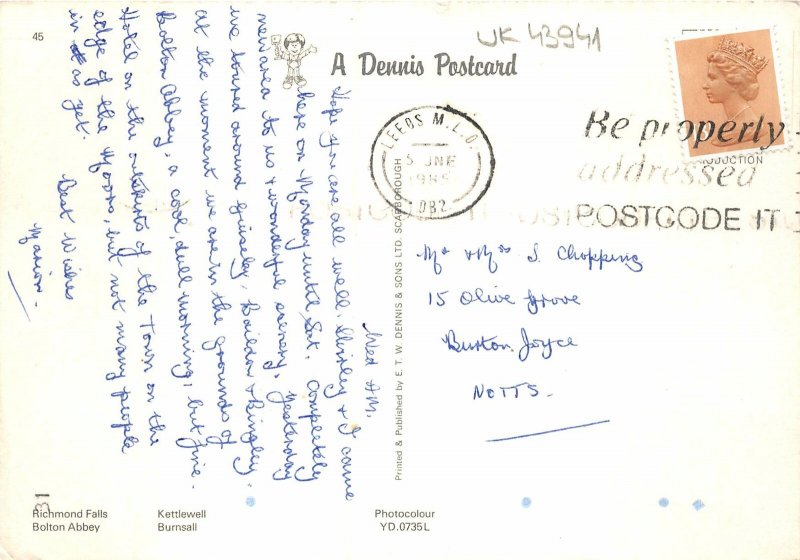 45
UK 43941
A Dennis Postcard
LEEDS M.L.O.
5 JNE
1985
DB2
Be properly
addressed
POSTCODE IT
Wed AM.
Hope you are all well, Shirley & I came
here on Monday until Sat. Completely
new area to us & wonderful scenery, yesterday
we toured around Guiseley, Baildon & Bingley.
at the moment we are in the grounds of
Bolton Abbey, a cool dull morning, but fine.
Hotel on the outskirts of the Town on the
edge of the Moors, but not many people
in it as yet.
Best Wishes
Marion.
Printed & Published by E. T. W. DENNIS & SONS LTD. SCARBOROUGH
Mr & Mrs S. Chopping
15 Olive Grove
Burton Joyce
NOTTS.
31
Richmond Falls
Bolton Abbey
Kettlewell
Burnsall
Photocolour
YD.0735L